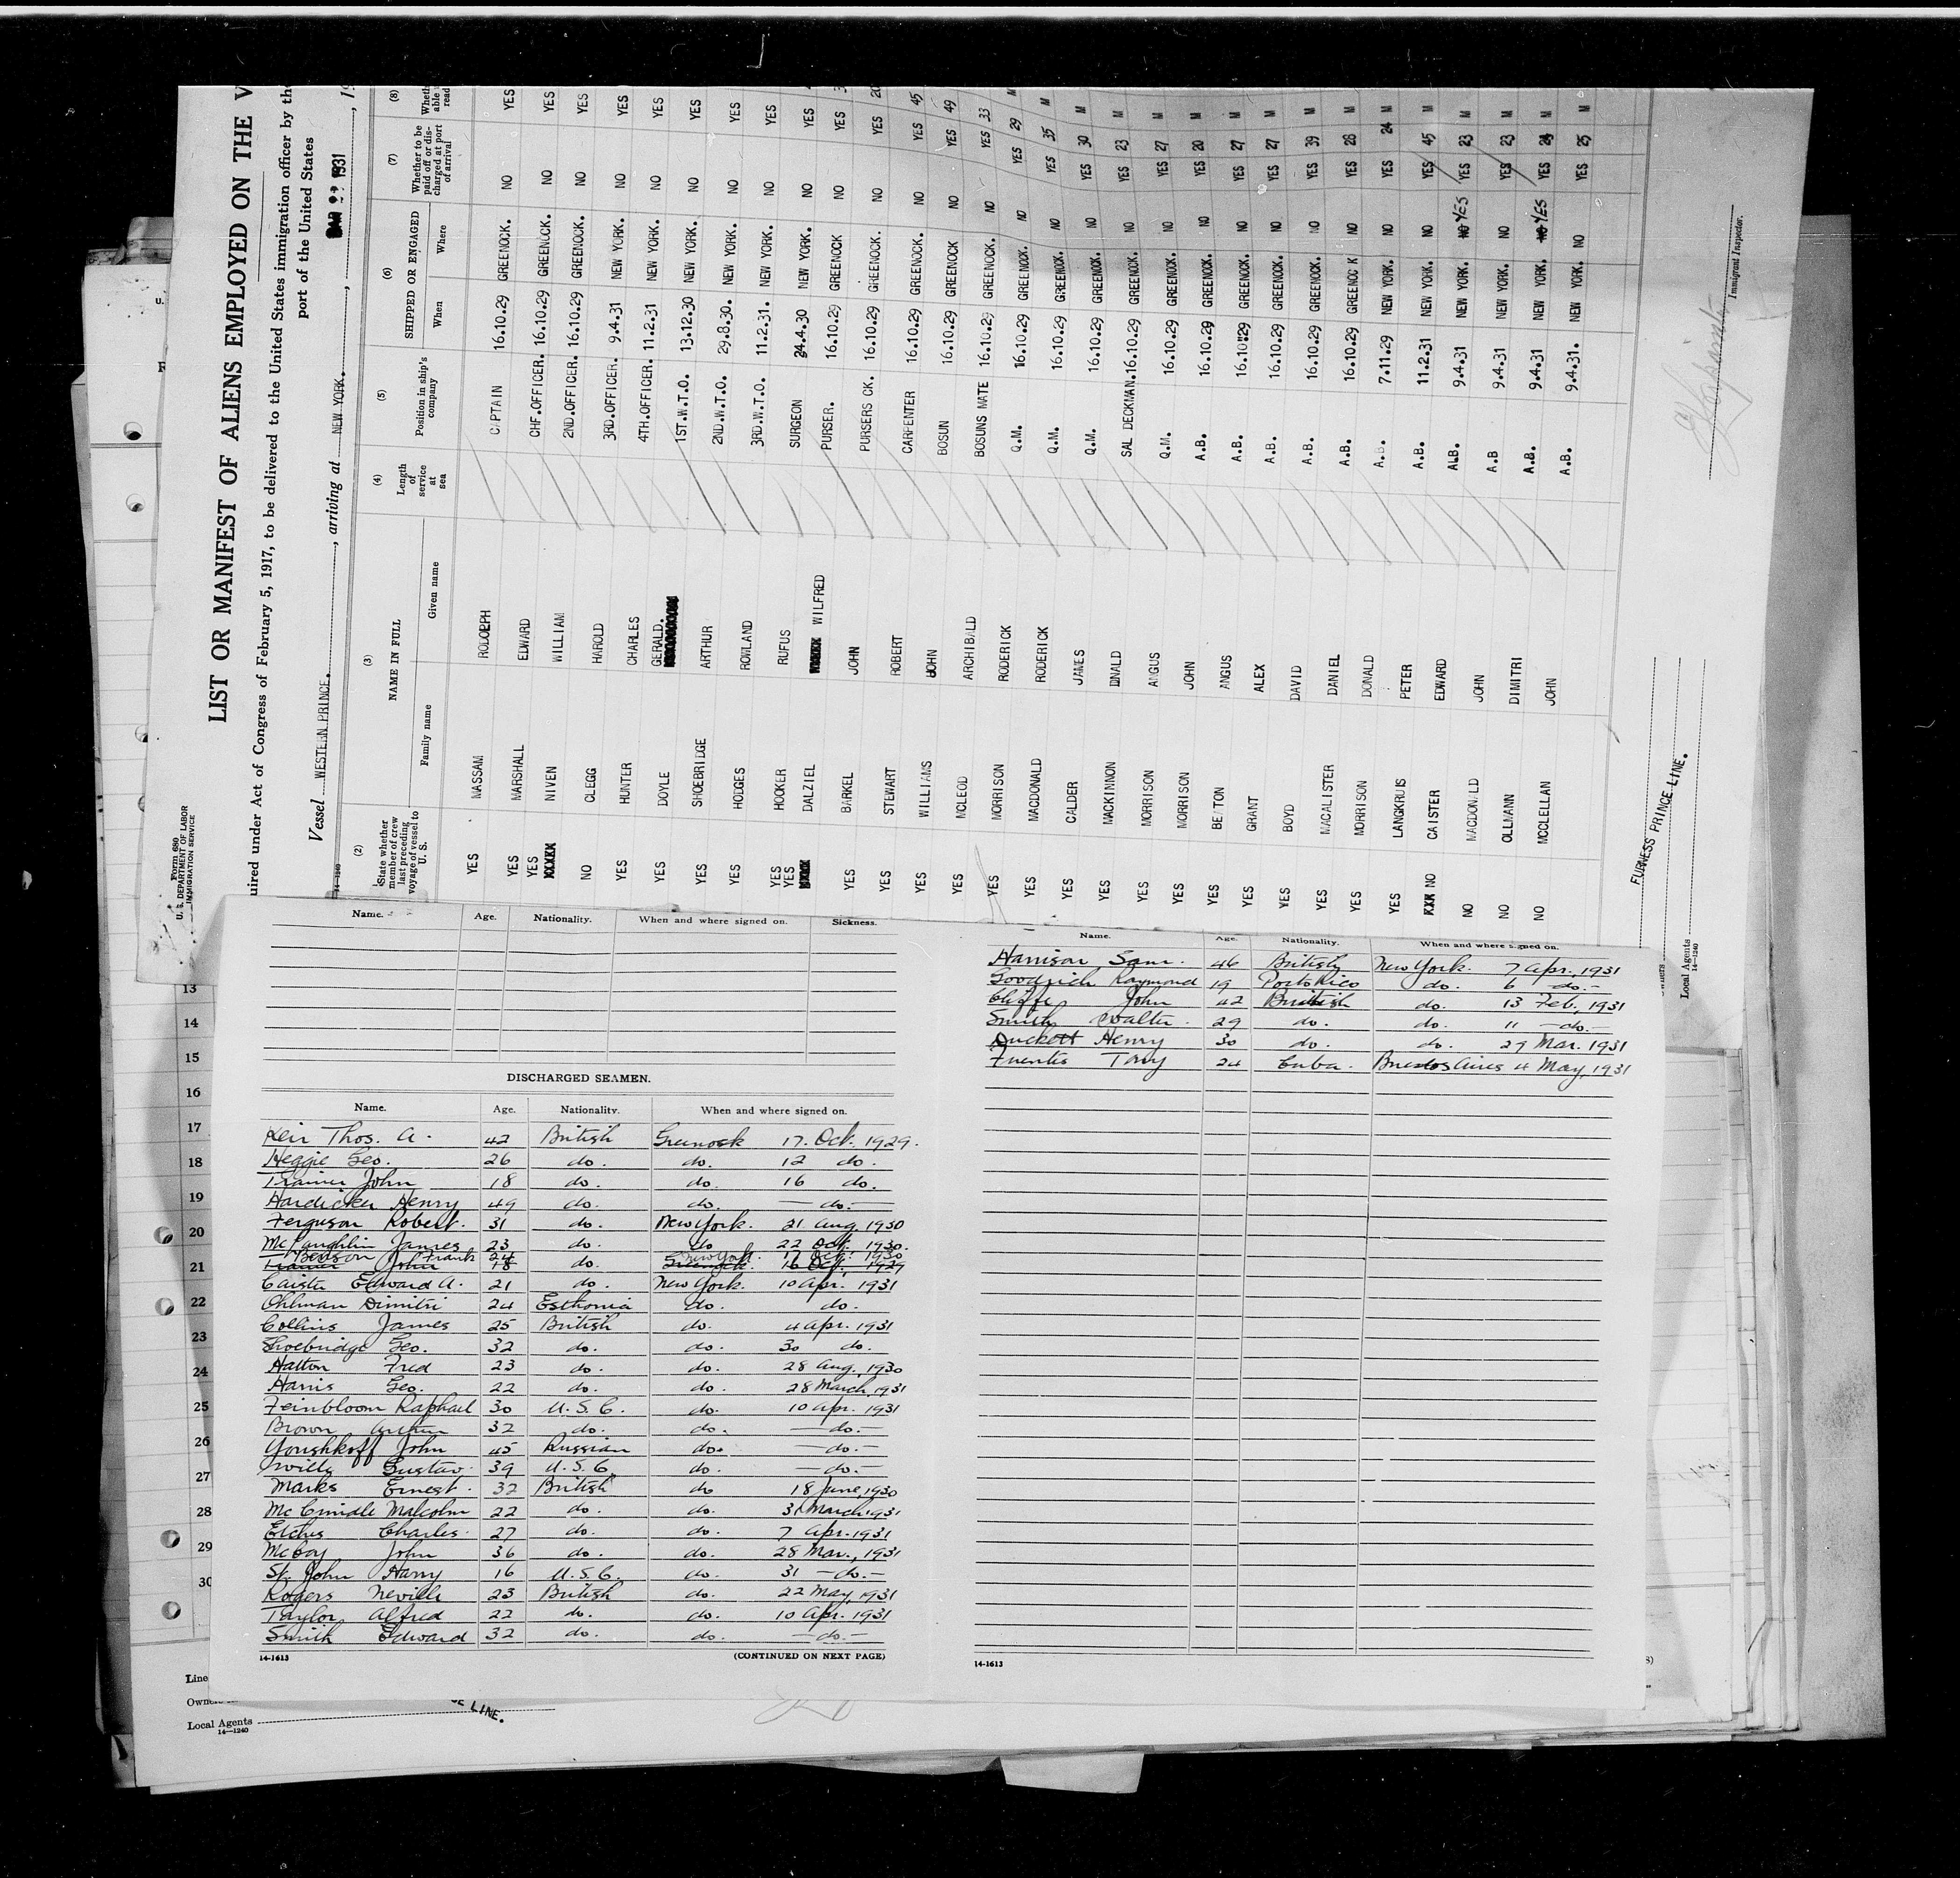 LIST OR MANIFEST OF ALIENS EMPLOYED ON THE V
uired under Act of Congress of February 5, 1917, to be delivered to the United States immigration officer by the
port of the United States
Vessel WESTERN PRINCE. , arriving at NEW YORK. , 1931 , 19
Form 680
U. S. DEPARTMENT OF LABOR
IMMIGRATION SERVICE
14-1240
(2) (3) (4) (5) (6) (7) (8)
State whether member of crew last preceding voyage of vessel to U. S.
NAME IN FULL
Family name Given name
Length of service at sea
Position in ship's company
SHIPPED OR ENGAGED
When Where
Whether to be paid off or discharged at port of arrival
Wheth able read
YES MASSAM RODOLPH CAPTAIN 16.10.29 GREENOCK. NO YES
YES MARSHALL EDWARD CHF.OFFICER. 16.10.29 GREENOCK. NO YES
YES NIVEN WILLIAM 2ND.OFFICER. 16.10.29 GREENOCK. NO YES
NO CLEGG HAROLD 3RD.OFFICER. 9.4.31 NEW YORK. NO YES
YES HUNTER CHARLES 4TH.OFFICER. 11.2.31 NEW YORK. NO YES
YES DOYLE GERALD. 1ST.W.T.O. 13.12.30 NEW YORK. NO YES
YES SHOEBRIDGE ARTHUR 2ND.W.T.O. 29.8.30. NEW YORK. NO YES
YES HODGES ROWLAND 3RD.W.T.O. 11.2.31. NEW YORK. NO YES
YES HOOKER RUFUS SURGEON 24.4.30 NEW YORK. NO YES
YES DALZIEL WILFRED PURSER. 16.10.29 GREENOCK NO YES
YES BARKEL JOHN PURSERS CK. 16.10.29 GREENOCK. NO YES 20
YES STEWART ROBERT CARPENTER 16.10.29 GREENOCK. NO YES 45
YES WILLIAMS JOHN BOSUN 16.10.29 GREENOCK NO YES 49
YES MCLEOD ARCHIBALD BOSUNS MATE 16.10.29 GREENOCK. NO YES 33
YES MORRISON RODERICK Q.M. 16.10.29 GREENOCK. NO YES 29 M
YES MACDONALD RODERICK Q.M. 16.10.29 GREENOCK. NO YES 35 M
YES CALDER JAMES Q.M. 16.10.29 GREENOCK. NO YES 30 M
YES MACKINNON DNALD SAL DECKMAN. 16.10.29 GREENOCK. NO YES 23 M
YES MORRISON ANGUS Q.M. 16.10.29 GREENOCK. NO YES 27 M
YES MORRISON JOHN A.B. 16.10.29 GREENOCK. NO YES 20 M
YES BETTON ANGUS A.B. 16.10.29 GREENOCK. NO YES 27 M
YES GRANT ALEX A.B. 16.10.29 GREENOCK. NO YES 27 M
YES BOYD DAVID A.B. 16.10.29 GREENOCK. NO YES 39 M
YES MACALISTER DANIEL A.B. 16.10.29 GREENOC K NO YES 28 M
YES MORRISON DONALD A.B. 7.11.29 NEW YORK. NO YES 24 M
YES LANGKRUIS PETER A.B. 11.2.31 NEW YORK. NO YES 45 M
NO CAISTER EDWARD A.B. 9.4.31 NEW YORK. NO YES YES 23 M
NO MACDONALD JOHN A.B 9.4.31 NEW YORK. NO YES 23 M
NO OLLMANN DIMITRI A.B. 9.4.31 NEW YORK. NO YES YES 24 M
NO MCCLELLAN JOHN A.B. 9.4.31. NEW YORK. NO YES 25 M
FURNESS PRINCE LINE.
Owners
Local Agents
14-1240
Immigrant Inspector.
Name. Age. Nationality. When and where signed on. Sickness.
DISCHARGED SEAMEN.
Name. Age. Nationality. When and where signed on.
Keir Thos. A. 42 British Greenock 17. Oct. 1929.
Heggie Geo. 26 do. do. 12 do.
Trainer John 18 do. do. 16 do.
Hardicker Henry 49 do. do. — do. —
Ferguson Robert. 31 do. New York. 21 Aug, 1930
McLaughlin James 23 do. do 22 Oct. 1930.
Benson Frank 24 New York. 17 Oct. 1930
Trainer John 18 do. Greenock. 16 Oct, 1929
Caister Edward A. 21 do. New York. 10 Apr. 1931
Ohlman Dimitri 24 Esthonia do. do.
Collins James 25 British do. 4 Apr. 1931
Shoebridge Geo. 32 do. do. 30 do.
Hatton Fred 23 do. do. 28 Aug, 1930
Harris Geo. 22 do. do. 28 March, 1931
Feinbloom Raphael 30 U.S.C. do. 10 Apr. 1931
Brown Arthur 32 do. do. — do. —
Youshkoff John 45 Russian do. — do. —
Gustav 39 U.S.C do. — do. —
Marks Ernest. 32 British do 18 June, 1930
McCrindle Malcolm 22 do. do. 31 March 1931
Etches Charles. 27 do. do. 7 Apr. 1931
McCoy John 36 do. do. 28 Mar., 1931
St. John Harry 16 U.S.C. do. 31 — do. —
Rogers Neville 23 British do. 22 May, 1931
Taylor Alfred 22 do. do. 10 Apr. 1931
Smith Edward 32 do. do. — do. —
14-1613 (CONTINUED ON NEXT PAGE)
Name. Age. Nationality. When and where signed on.
Harrison Sam. 46 British New York. 7 Apr., 1931
Goodrich Raymond 19 Porto Rico do. 6 — do. —
Cliffe John 42 British do. 13 Feb, 1931
Smith Walter. 29 do. do. 11 — do. —
Duckett Henry 30 do. do. 29 Mar. 1931
Fuentes Tony 24 Cuba. Buenos Aires 4 May, 1931
14-1613
13
14
15
16
17
18
19
20
21
22
23
24
25
26
27
28
29
30
Line
Owners
Local Agents
14-1240
LINE.